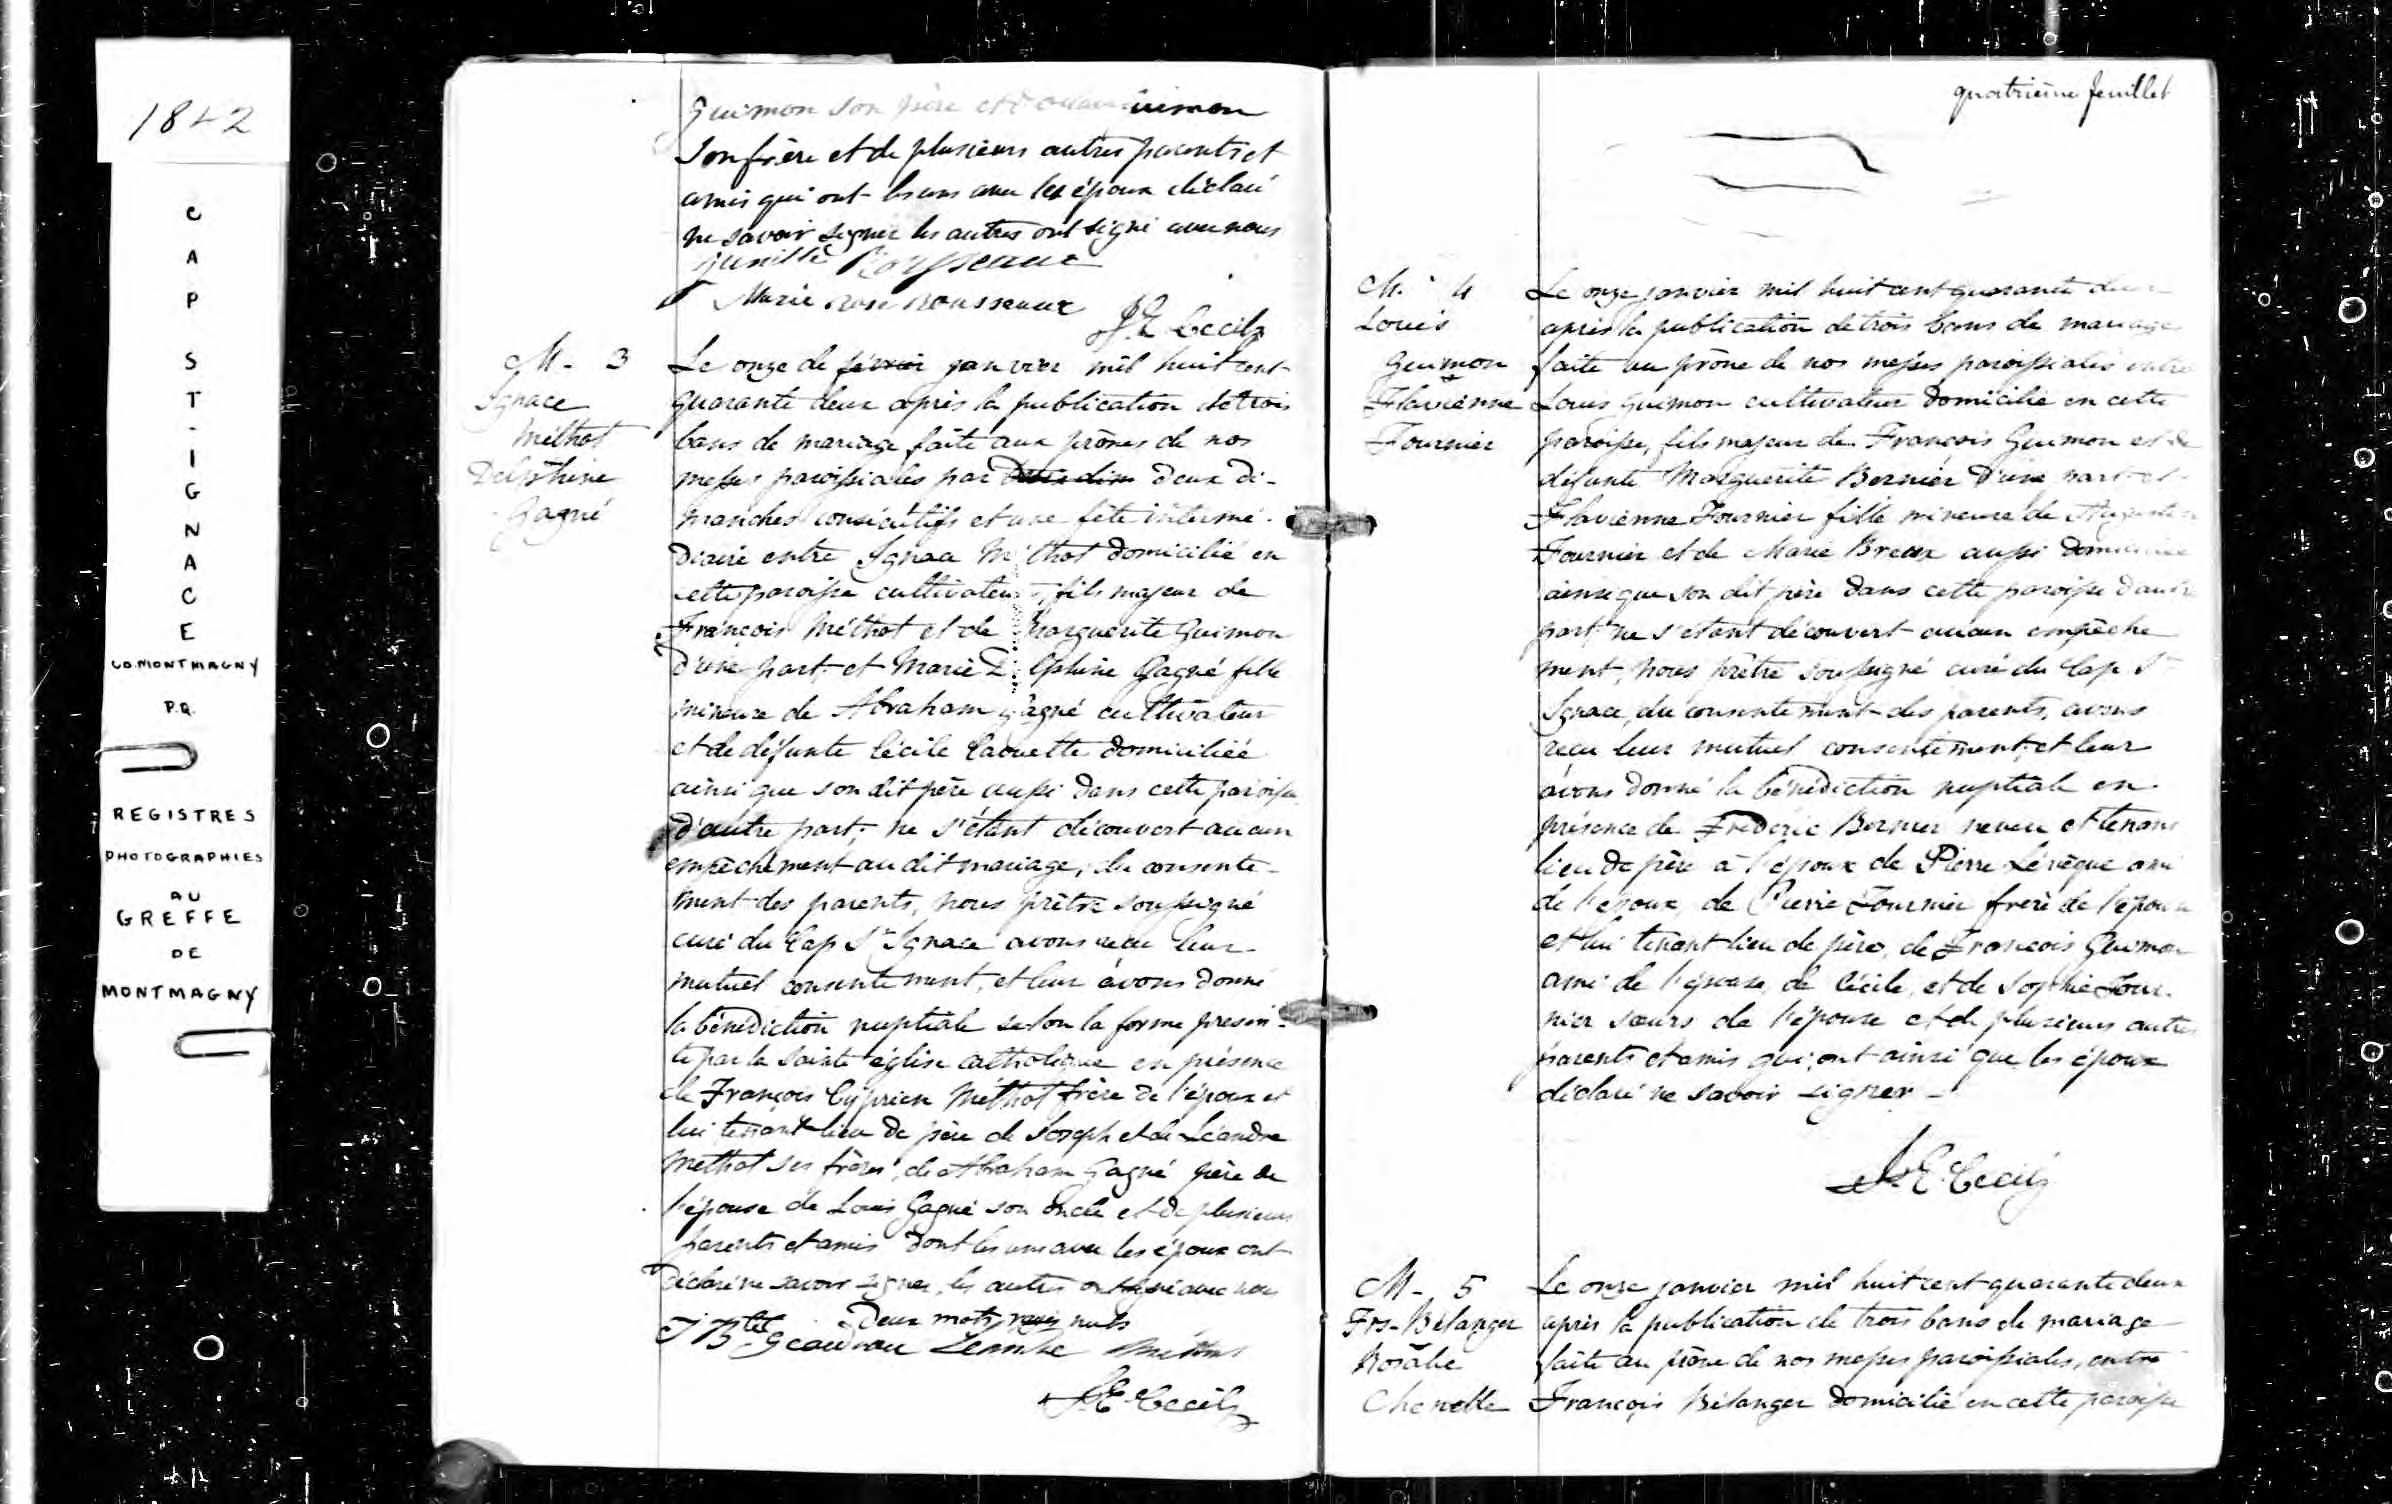 1842
CAP ST-IGNACE
CO. MONTMAGNY
P.Q.
REGISTRES
PHOTOGRAPHIES
AU
GREFFE
DE
MONTMAGNY
Guimon son père et
son frère et de plusieurs autres parents et
amis qui ont les uns avec les époux déclaré
ne savoir signer les autres ont signé avec nous
Marie rose rousseaux
J. E. Cecil
M. - 3
Ignace
Méthot
Delphine
Gagné
Le onze de février janvier mil huit cent
quarante deux après la publication de trois
bans de mariage faite aux prônes de nos
messes paroissiales par deux di-
manches consécutifs et une fête intermé-
diaire entre Ignace Méthot domicilié en
cette paroisse cultivateur, fils majeur de
François Méthot et de Marguerite Guimon
d'une part et Marie Delphine Gagné fille
mineure de Abraham Gagné cultivateur
et de défunte Cécile domiciliée
ainsi que son dit père aussi dans cette paroisse
d'autre part; ne s'étant découvert aucun
empêchement au dit mariage, du consente-
ment des parents, nous prêtre soussigné
curé du Cap St Ignace avons reçu leur
mutuel consentement, et leur avons donné
la bénédiction nuptiale selon la forme prescri-
te par la sainte église catholique en présence
de François Cyprien Méthot frère de l'époux et
lui tenant lieu de père de Joseph et de Léandre
Méthot ses frères, de Abraham Gagné père de
l'épouse de Louis Gagné son oncle et de plusieurs
parents et amis dont les uns avec les époux ont
déclaré ne savoir signer, les autres ont signé avec nous
Deux mots rayés nuls
J Bte Geaudrau
J. E. Cecil
quatrième feuillet
M. 4
Louis
Guimon
&
Flavienne
Fournier
Le onze janvier mil huit cent quarante deux
après la publication de trois bans de mariage
faite au prône de nos messes paroissiales entre
Louis Guimon cultivateur domicilié en cette
paroisse, fils majeur de François Guimon et de
défunte Marguerite Bernier d'une part et
Flavienne Fournier fille mineure de Augustin
Fournier et de Marie aussi domiciliée
ainsi que son dit père dans cette paroisse d'autre
part, ne s'étant découvert aucun empêche
ment, nous prêtre soussigné curé du Cap St
Ignace, du consentement des parents, avons
reçu leur mutuel consentement, et leur
avons donné la bénédiction nuptiale en
présence de Frédéric Bernier neveu et tenant
lieu de père à l'époux de Pierre Lévèque ami
de l'époux, de Pierre Fournier frère de l'épouse
et lui tenant lieu de père, de François Guimon
ami de l'épouse, de Cécile, et de Sophie Four-
nier sœurs de l'épouse et de plusieurs autres
parents et amis qui ont ainsi que les époux
déclaré ne savoir signer -
J. E. Cecil
M - 5
Frs. Bélanger
Rosalie
Le onze janvier mil huit cent quarante deux
après la publication de trois bans de mariage
faite au prône de nos messes paroissiales, entre
François Bélanger domicilié en cette paroisse